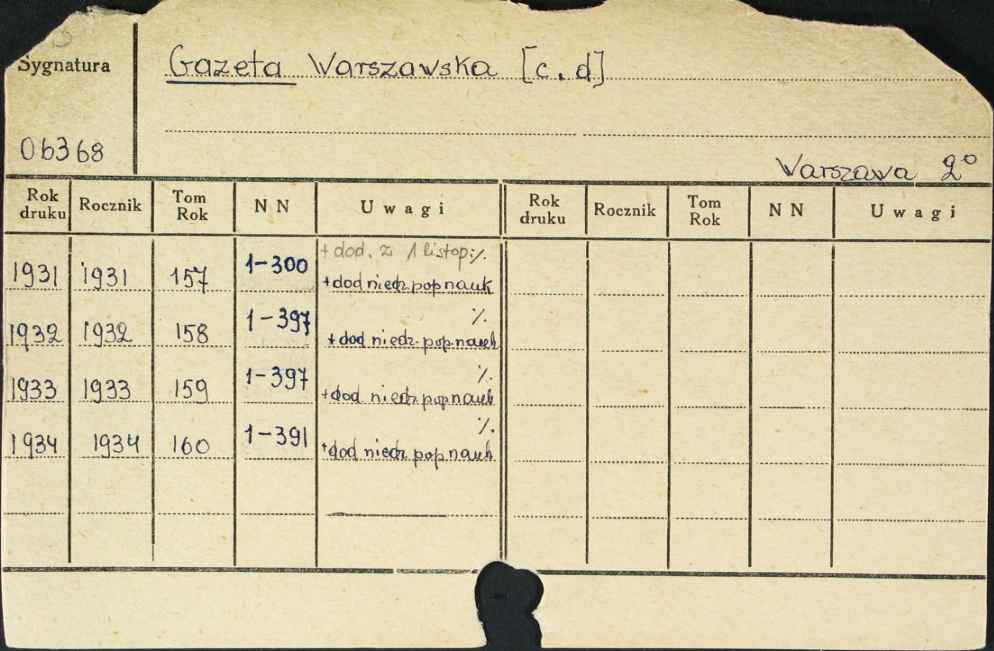 Sygnatura
Gazeta Warszawska [c.d]
06368
Warszawa 2°
Rok druku Rocznik Tom Rok NN Uwagi Rok druku Rocznik Tom Rok NN Uwagi
+ dod. z 1 listop. ./.
1931 1931 157 1-300 + dod niedz. pop nauk
./.
1932 1932 158 1-397 + dod niedz. pop nauk
./.
1933 1933 159 1-397 + dod niedz. pop nauk
./.
1934 1934 160 1-391 + dod niedz. pop nauk